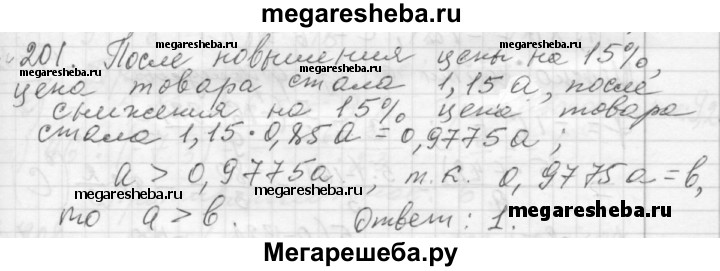 megaresheba.ru
201. После повышения цены на 15%,
megaresheba.ru megaresheba.ru
цена товара стала 1,15a, после
снижения на 15% цена товара
megaresheba.ru
стала 1,15·0,85a = 0,9775a;
a > 0,9775a, т.к. 0,9775a = b,
megaresheba.ru megaresheba.ru
то a > b. Ответ: 1.
megaresheba.ru
Мегарешеба.ру